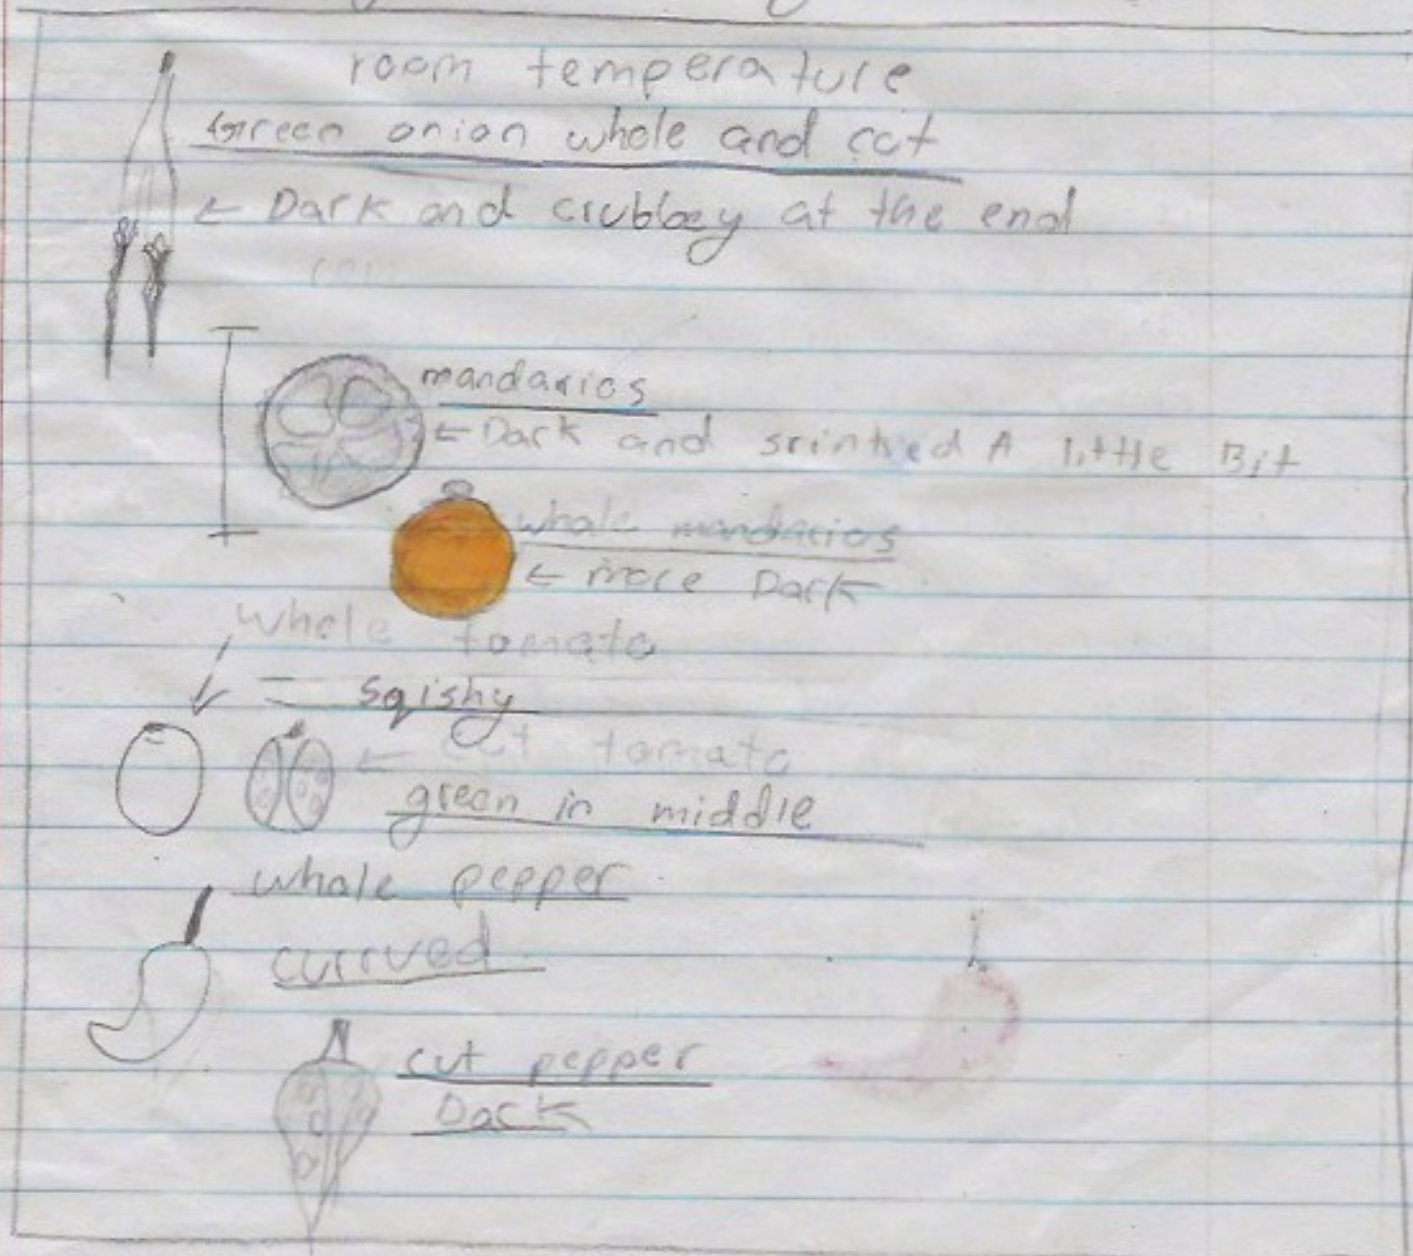 room temperature
Green onion whole and cut
← Dark and crubbey at the end
mandarios
← Dark and srinked A little Bit
whole mandarios
← more Dark
whole tomato
= sqishy
← cut tomato
green in middle
whole pepper
currved
cut pepper
Dark